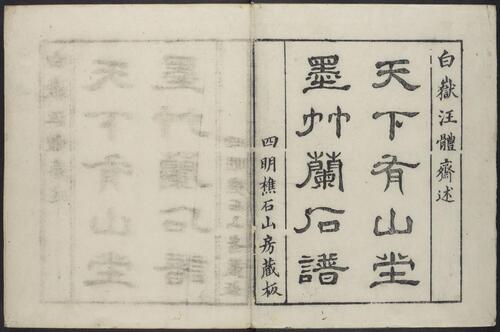 白嶽汪體齋述
天下有山堂
墨竹蘭石譜
四明樵石山房藏板